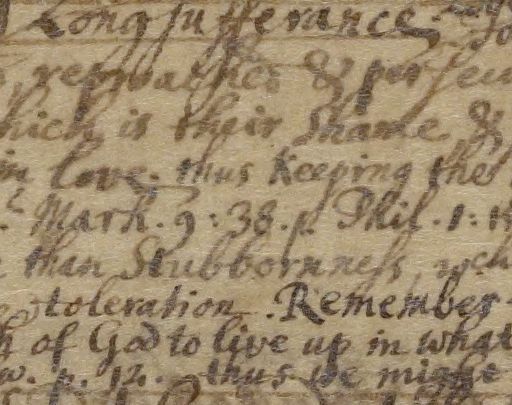 Longsufferance. 
reproaches & persecu
hich is their Shame &
in love. thus Keeping the
Mark. 9:38. p. Phil. 1: 1
than Stubbornness, wch
toleration. Remember
of God to live up in what
w. p. 12. thus we might